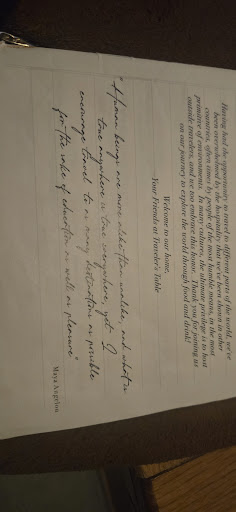 Having had the opportunity to travel to different parts of the world, we've
been overwhelmed by the hospitality that we've been shown in other
countries, often times by people of the most humble means, in the most
primitive of environments. In many cultures, the ultimate privilege is to host
outside travelers, and we too embrace this honor. Thank you for joining us
on our journey to explore the world through food and drink!
Welcome to our home,
Your Friends at Traveler's Table
"Human beings are more alike than unlike, and what is
true anywhere is true everywhere, yet I
encourage travel to as many destinations as possible
for the sake of education as well as pleasure"
Maya Angelou